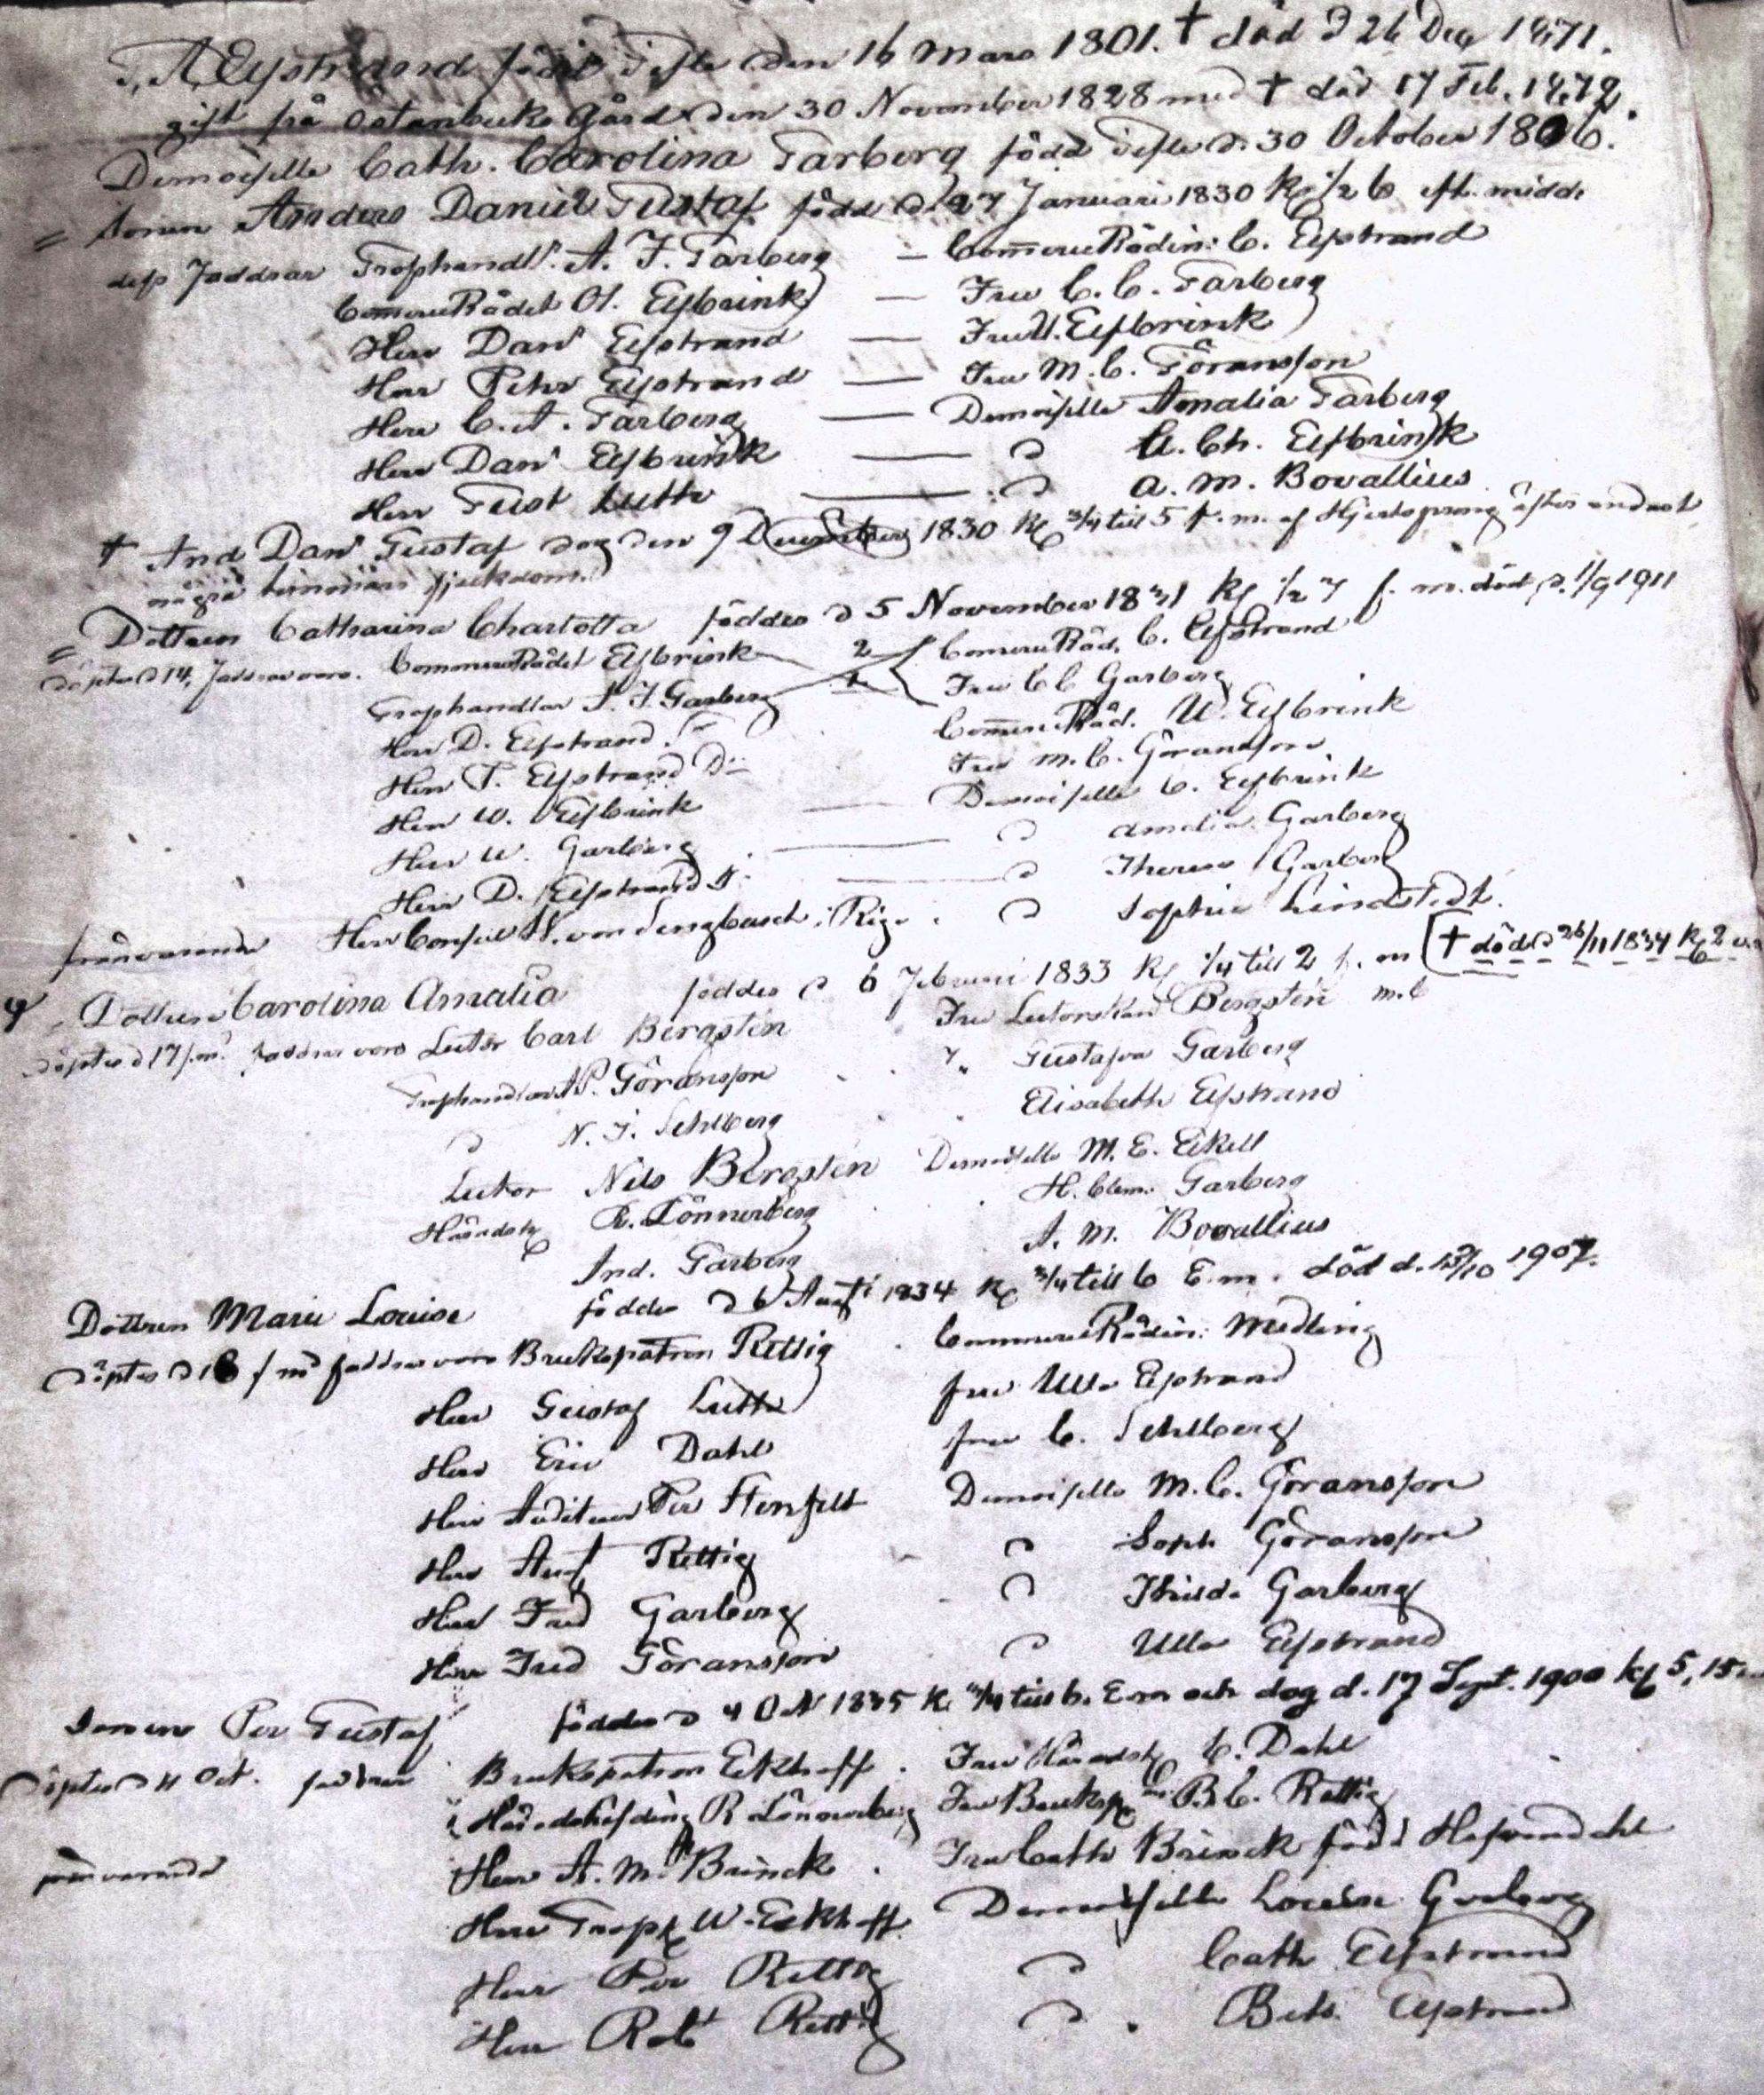 Elfstrand född Gefle den 16 Mars 1801. † död d 26 Dec 1871.
gift på Östanbecks Gård den 30 November 1828 med † död 17 Feb. 1872.
Demoiselle Cath. Carolina Garberg född Gefle d. 30 October 1806.
= Sonen Anders Daniel Gustaf född d. 27 Januari 1830 Kl 1/2 6 eft. midd.
dess Faddrar Groshandl. A. F. Garberg — CommerceRådin: C. Elfstrand
CommerceRådet Ol. Elfbrink — Fru C. C. Garberg
Herr Dan Elfstrand — Fru U. Elfbrink
Herr Pehr Elfstrand — Fru M. C. Göransson
Herr C. A. Garberg — Demoiselle Amalia Garberg
Herr Dan Elfbrink — D Ch. Elfbrink
Herr Gust Luth — D A. M. Bovallius
† And Dan Gustaf dog den 9 1830 Kl 3/4 till 5 f. m. af Hjertsprång efter endast
några timmars sjukdom.
= Dottren Catharina Charlotta föddes d 5 November 1831 Kl 1/2 7 f. m. död d. 1/9 1911
döptes d 14, Faddrar voro. CommerceRådet Elfbrink 2 CommerceRåd. C. Elfstrand
Groshandlar A. F. Garberg 1 Fru C C Garberg
Herr D. Elfstrand. CommerceRåd. U. Elfbrink
Herr P. Elfstrand D:n Fru M. C. Göransson
Herr W. Elfbrink — Demoiselle C. Elfbrink
Herr W. Garberg — D Amalia Garberg
Herr D. Elfstrand — D Therese Garberg
frånvarande Herr Consul von Sengbusch, Riga. D Sophie Lindstedt.
Dottren Carolina Amalia föddes d 6 Februari 1833 Kl 1/4 till 2 f. m († död d 26/11 1834 Kl 2
döptes d 17 f. m. Faddrar voro Lector Carl Bergsten Fru Lectorskan Bergsten M. C
Groshandlar A P. Göransson " Gustafva Garberg
D N. J. Sehlberg Elisabeth Elfstrand
Lector Nils Bergsten Demoiselle M. E. Eckell
Häradsh R. Lönnerberg H. Clem. Garberg
And. Garberg A. M. Bovallius
Dottren Marie Louise föddes d 6 Aug 1834 Kl 3/4 till 6 E.m. död d. 13/10 1907.
döptes d 18 f m faddrar voro Brukspatron Rettig CommerceRådin: Medling
Herr Gustaf Luth Fru Ulla Elfstrand
Herr Eric Dahl Fru C. Sehlberg
Herr Auditeur Per Stenfelt Demoiselle M. C. Göransson
Herr Aug Rettig D Soph Göransson
Herr Fred Garberg D Thilda Garberg
Herr Fred Göransson D Ulla Elfstrand
Sonen Per Gustaf föddes d 4 Oct 1835 Kl 3/4 till 6. E m och dog d. 17 Sept. 1900 kl 5,15
döptes d 11 Oct. faddrar Brukspatron Eckhoff. Fru Häradsh C. Dahl
Häradshöfding R Lönnerberg Fru Bruksp B. C. Rettig
frånvarande Herr A. M. Brinck. Fru Cath Brinck född
Herr Grosh W. Eckhoff Demoiselle Louise Garberg
Herr Per Rettig D Cath Elfstrand
Herr Rob Rettig D. Bets Elfstrand